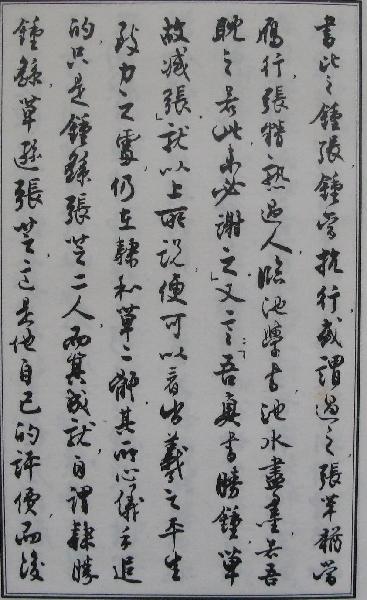 書比之鍾張,鍾當抗行,或謂過之,張草猶當
鴈行,張精熟過人,臨池學書,池水盡墨,若吾
耽之若此,未必謝之」,又云:吾真書勝鍾,草
故減張」,就以上所說,便可以看出羲之平生
致力之處,仍在隸和草二體,其所心儀手追
的,只是鍾繇張芝二人,而其成就,自謂隸勝
鍾繇,草遜張芝,這是他自己的評價,而後